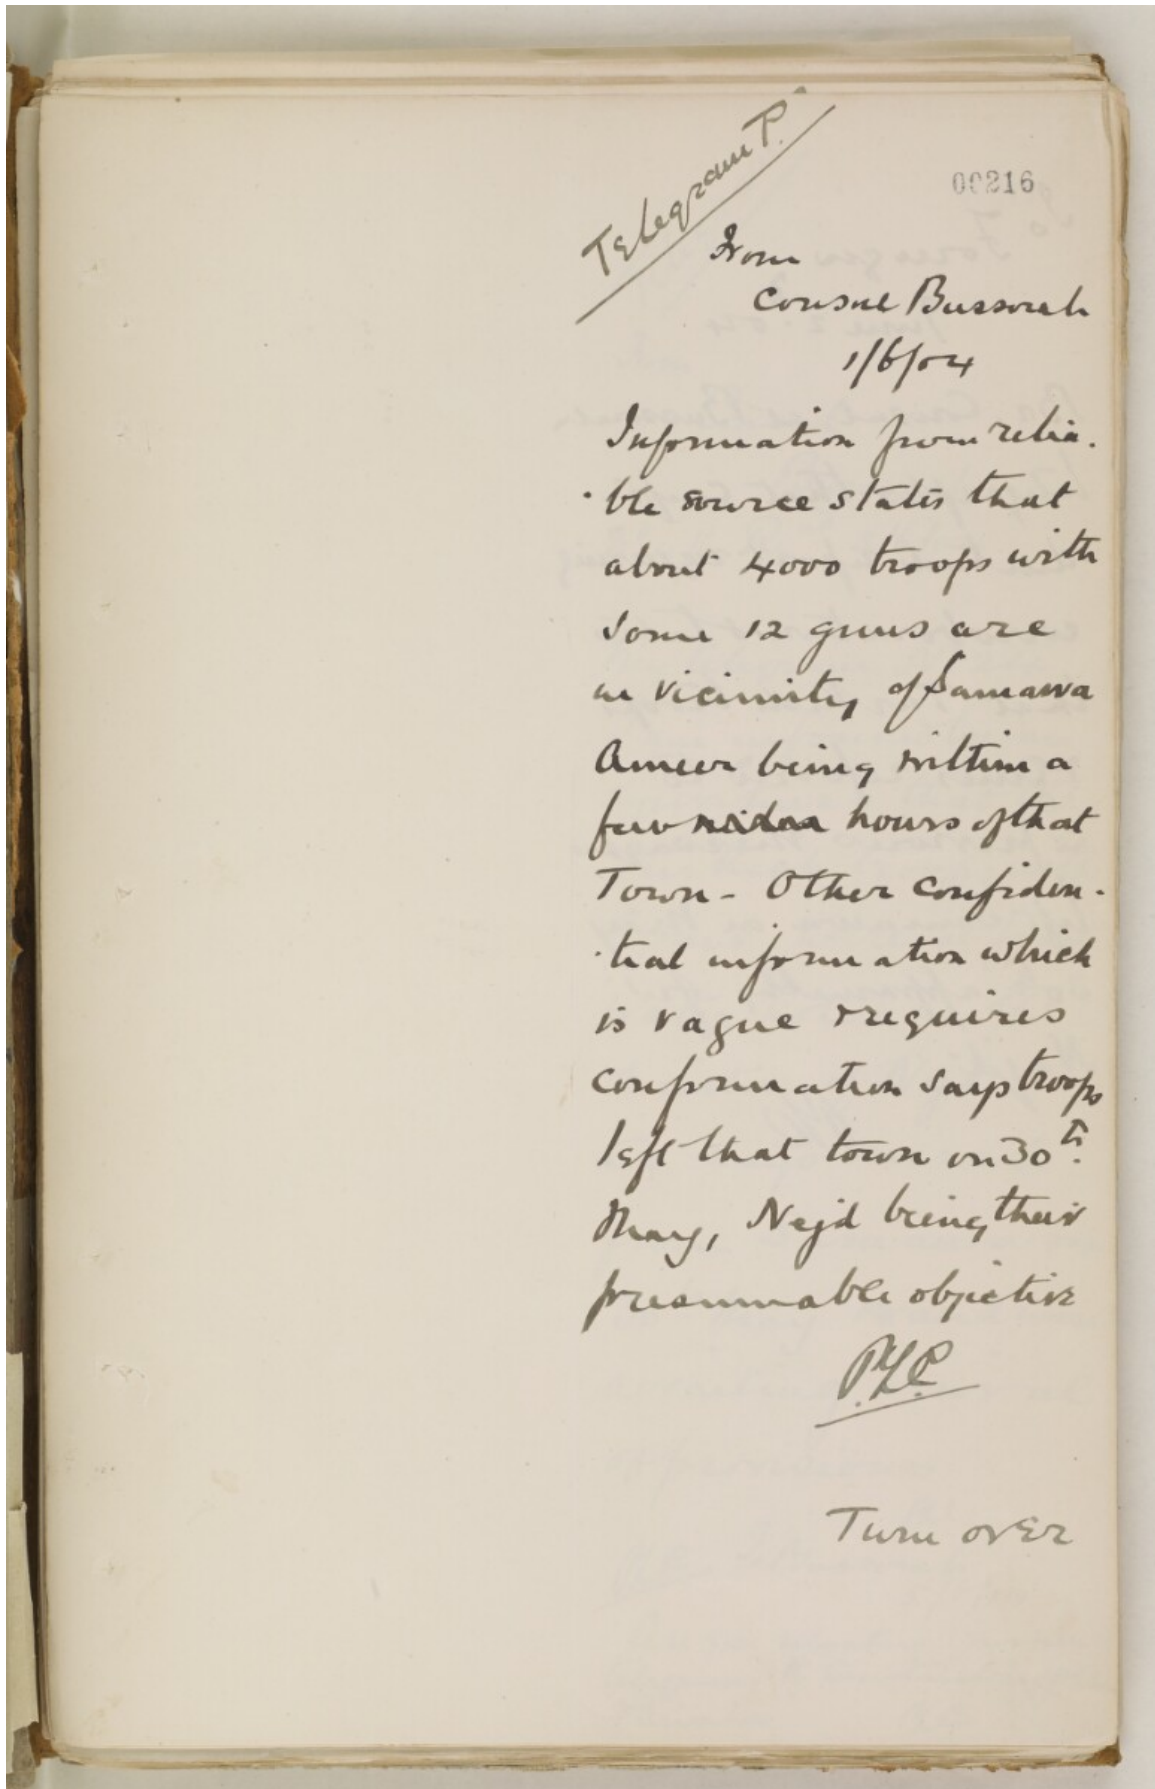 Telegram P.
00216
From
Consul Bussorah
1/6/04
Information from relia-
-ble source states that
about 4000 troops with
some 12 guns are
in vicinity of Samawa
Ameer being within a
few hours of that
Town - Other confiden-
-tial information which
is vague & requires
confirmation says troops
left that town on 30th.
May, Nejd being their
presumable objective
P.Z.C.
Turn over